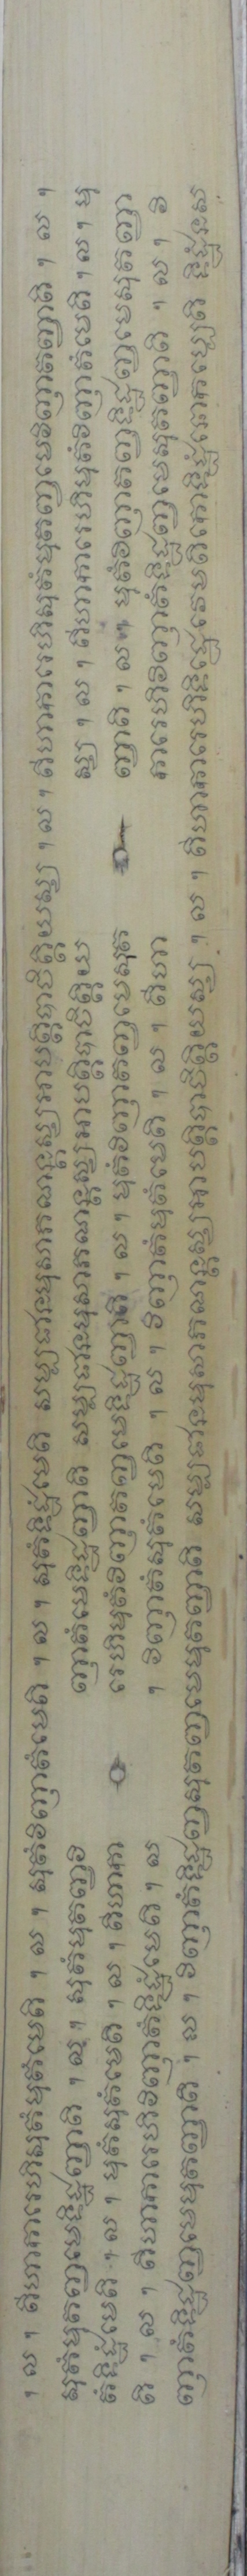 ។ ល ។ តីហាការេហិសុតំមុតំមេតិ ។ ល ។ សុតំវិញាតំមេតិ ។ ល ។ សុតំទិដ្ឋំមេតិ សម្បជានមុសាភណន្តស្សអាបត្តិបាចិត្តិយស្ស ។ ល ។ តីហាការេហិសុតំមុតញ្ចមេវិញាតញ្ចាតិ ។ ល ។
សុតំមុតញ្ចមេទិដ្ឋញ្ចាតិ ។ ល ។ សុតំមុតញ្ចវិ ញាតំមេទិដ្ឋញ្ចាតិ សម្បជានមុសាភណន្តស្សអាបត្តិបាចិត្តិយ ស្ស ។ ល ។ តីហាការេហិមុតំវិញាតំមេតិ ។ ល ។ មុ
តំទិដ្ឋំមេតិ ។ ល ។ មុតំសុតំមេតិ ។ ល ។ តីហាកា រេហិមុតំវិញាតញ្ចមេទិដ្ឋញ្ចាតិ ។ ល ។ មុតំវិញាតញ្ចមេសុត ញ្ចាតិ ។ ល ។ មុតំវិញាតញ្ចទិដ្ឋញ្ចមេសុតញ្ចា
តិ ។ ល ។ តីហាការេហិវិញាតំទិដ្ឋំមេតិ ។ ល ។ វិញាតំសុតំមេតិ ។ ល ។ វិញាតំមុតំមេតិ ។ ល ។ តីហា ការេហិវិញាតំទិដ្ឋញ្ចមេសុតញ្ចាតិ ។ ល ។ វិ
ញាតំទិដ្ឋញ្ចមេមុតញ្ចាតិ ។ ល ។ វិញាតំទិដ្ឋញ្ចសុតញ្ចមេមុតញ្ចាតិ សម្បជានមុសាភណន្តស្សអាបត្តិបាចិត្តិយស្ស ។ ល ។ តីហាការេហិទិដ្ឋេវេមតិកោទិដ្ឋំនោកប្បេតិ ទិដ្ឋំនស